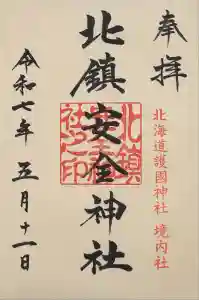 奉拝
北海道護國神社 境内社
北鎮安全神社
令和七年 五月十一日